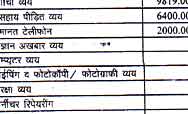 व्यय 9819.00
सहाय पीड़ित व्यय 6400.00
मानत टेलीफोन 2000.00
ज्ञान अखबार व्यय
म्प्यूटर व्यय
ईपिंग द फोटोकॉपी/ फोटोग्राफी व्यय
रक्षा व्यय
र्नीचर रिपेयरींग